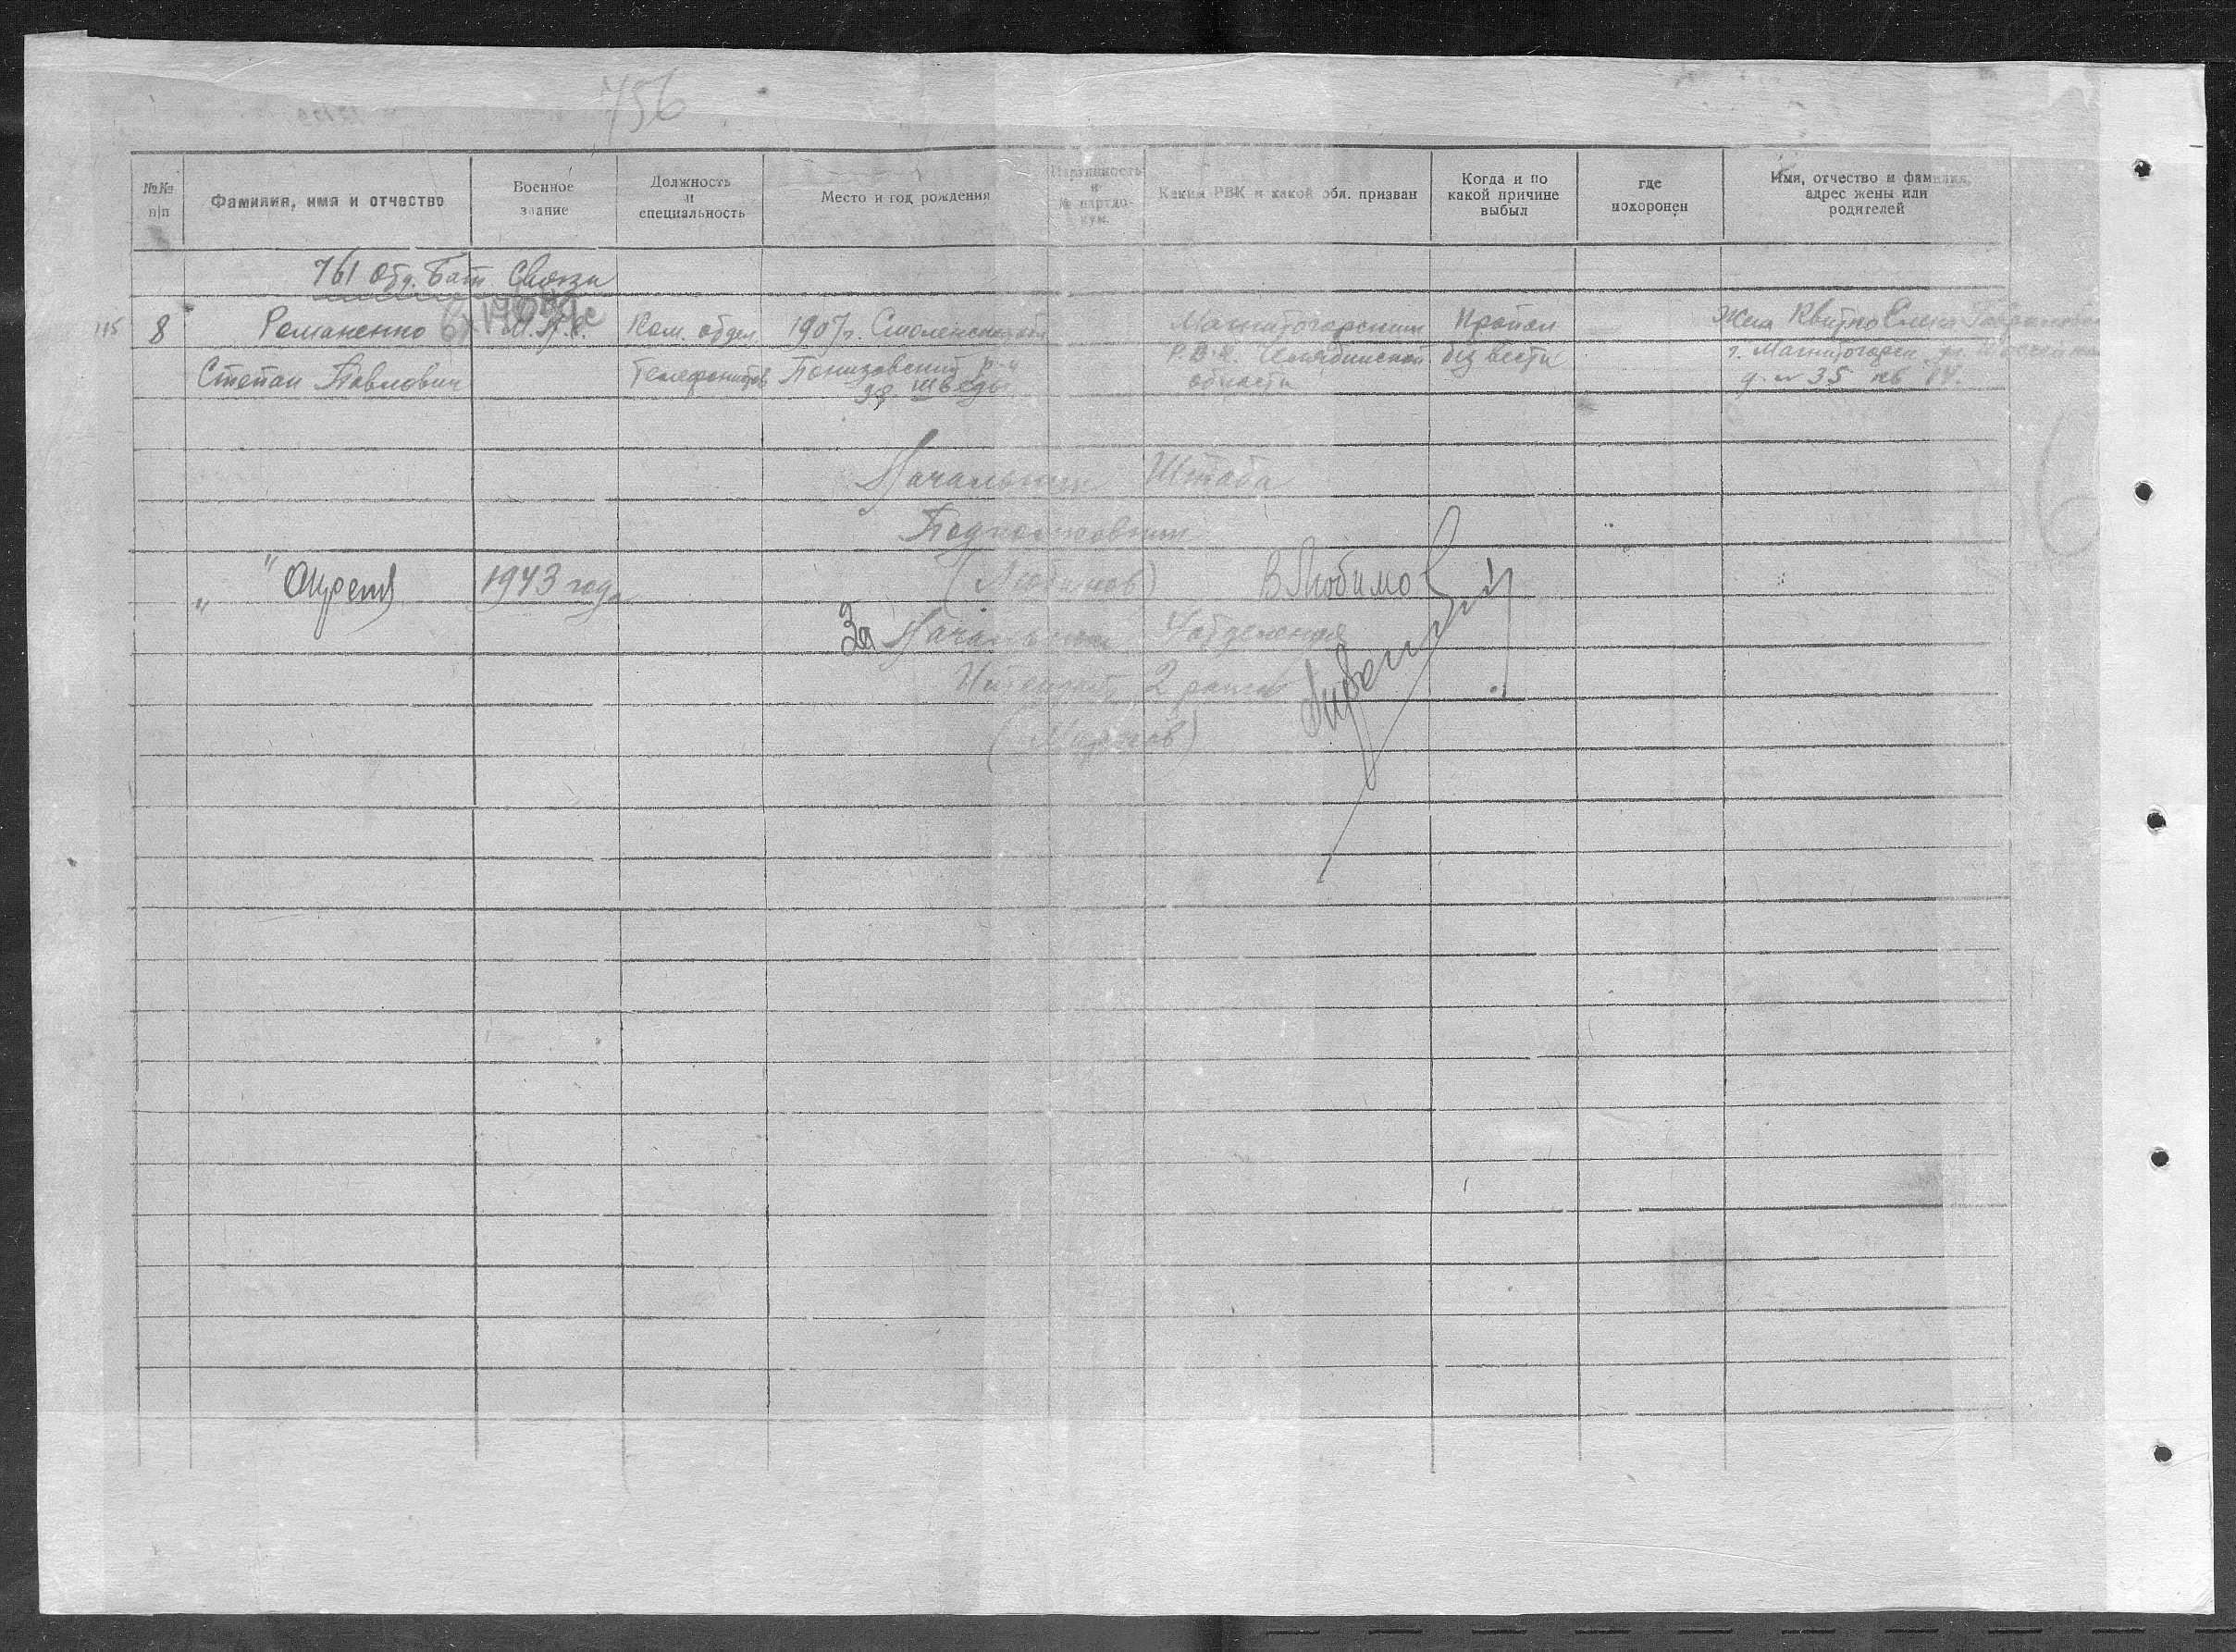 756
№№ п/п
Фамилия, имя и отчество
Военное звание
Должность и специальность
Место и год рождения
Партийность и № партдокум.
Каким РВК и какой обл. призван
Когда и по какой причине выбыл
где похоронен
Имя, отчество и фамилия, адрес жены или родителей
761 Отд. Бат Связи
115
8
Романенко
Степан Павлович
Ком. отдел.
Телефонистов
1907г. Смоленская обл
Понизовский р-н
Шведы
Магнитогорским
Р.В.К. Челябинской
области
Пропал
без вести
Жена Квитко Елена
г. Магнитогорск
д. № 35 кв
Начальник Штаба
Подполковник
(Любимов) В Любимов
" " Апреля 1943 года
За Начальник 4 отделения
Интендант 2 ранга